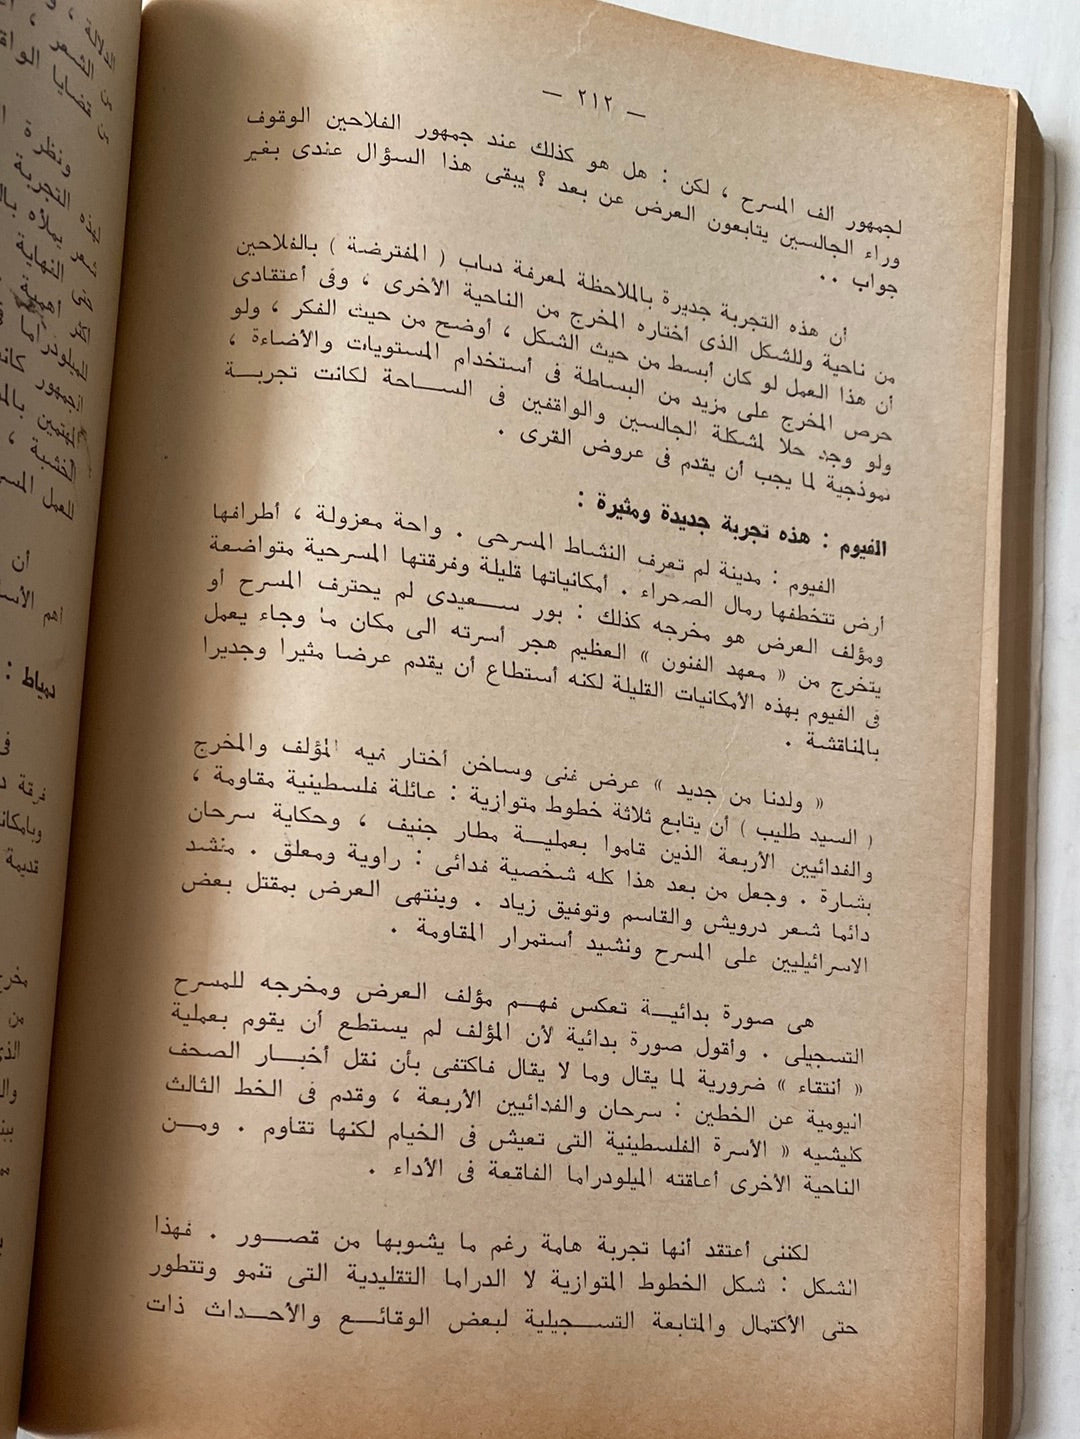 — ٢١٢ —
لجمهور ألف المسرح ، لكن : هل هو كذلك عند جمهور الفلاحين الوقوف
وراء الجالسين يتابعون العرض عن بعد ؟ يبقى هذا السؤال عندى بغير
جواب ..
أن هذه التجربة جديرة بالملاحظة لمعرفة دياب ( المفترضة ) بالفلاحين
من ناحية وللشكل الذى أختاره المخرج من الناحية الأخرى ، وفى أعتقادى
أن هذا العمل لو كان أبسط من حيث الشكل ، أوضح من حيث الفكر ، ولو
حرص المخرج على مزيد من البساطة فى أستخدام المستويات والأضاءة ،
ولو وجد حلا لمشكلة الجالسين والواقفين فى الساحة لكانت تجربة
نموذجية لما يجب أن يقدم فى عروض القرى .
الفيوم : هذه تجربة جديدة ومثيرة :
الفيوم : مدينة لم تعرف النشاط المسرحى . واحة معزولة ، أطرافها
أرض تتخطفها رمال الصحراء . أمكانياتها قليلة وفرقتها المسرحية متواضعة
ومؤلف العرض هو مخرجه كذلك : بور سعيدى لم يحترف المسرح أو
يتخرج من « معهد الفنون » العظيم هجر أسرته الى مكان ما وجاء يعمل
فى الفيوم بهذه الأمكانيات القليلة لكنه أستطاع أن يقدم عرضا مثيرا وجديرا
بالمناقشة .
« ولدنا من جديد » عرض فنى وساخن أختار فيه المؤلف والمخرج
( السيد طليب ) أن يتابع ثلاثة خطوط متوازية : عائلة فلسطينية مقاومة ،
والفدائيين الأربعة الذين قاموا بعملية مطار جنيف ، وحكاية سرحان
بشارة . وجعل من بعد هذا كله شخصية فدائى : راوية ومعلق . منشد
دائما شعر درويش والقاسم وتوفيق زياد . وينتهى العرض بمقتل بعض
الاسرائيليين على المسرح ونشيد أستمرار المقاومة .
هى صورة بدائية تعكس فهم مؤلف العرض ومخرجه للمسرح
التسجيلى . وأقول صورة بدائية لأن المؤلف لم يستطع أن يقوم بعملية
« أنتقاء » ضرورية لما يقال وما لا يقال فاكتفى بأن نقل أخبار الصحف
اليومية عن الخطين : سرحان والفدائيين الأربعة ، وقدم فى الخط الثالث
كليشيه « الأسرة الفلسطينية التى تعيش فى الخيام لكنها تقاوم . ومن
الناحية الأخرى أعاقته الميلودراما الفاقعة فى الأداء .
لكننى أعتقد أنها تجربة هامة رغم ما يشوبها من قصور . فهذا
الشكل : شكل الخطوط المتوازية لا الدراما التقليدية التى تنمو وتتطور
حتى الأكتمال والمتابعة التسجيلية لبعض الوقائع والأحداث ذات